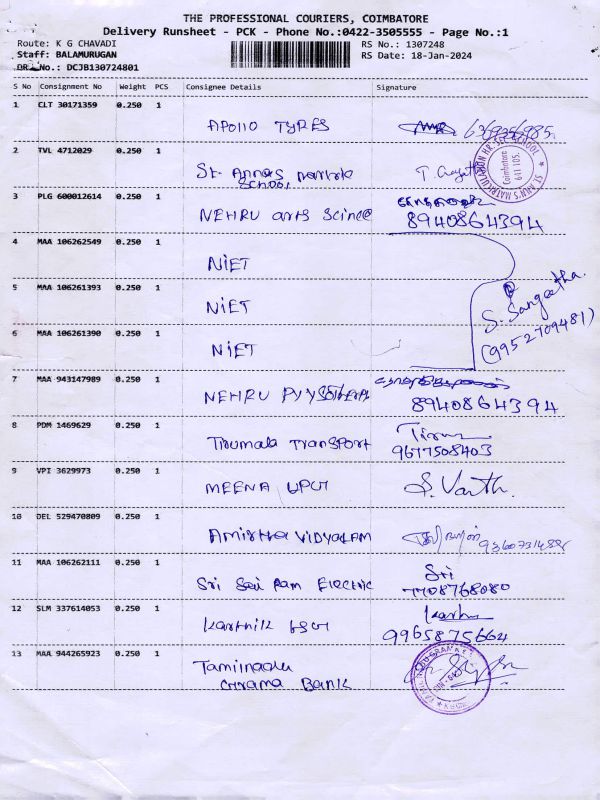 THE PROFESSIONAL COURIERS, COIMBATORE
Delivery Runsheet - PCK - Phone No.:0422-3505555 - Page No.:1
Route: K G CHAVADI
RS No.: 1307248
Staff: BALAMURUGAN
RS Date: 18-Jan-2024
DRS No.: DCJB130724801
S No Consignment No Weight PCS Consignee Details Signature
1 CLT 30171359 0.250 1
APOllO TYRES 6369356985
2 TVL 4712029 0.250 1
St. Annas
School
Coimbatore
641 105.
3 PLG 600012614 0.250 1
NEHRU arts Science 8940864394
4 MAA 106262549 0.250 1
NiET
5 MAA 106261393 0.250 1
NiET
S. Sangeetha.
(9952709481)
6 MAA 106261390 0.250 1
NiET
7 MAA 943147989 0.250 1
NEHRU
8940864394
8 PDM 1469629 0.250 1
Tirumala TRANSPORT
9677508403
9 VPI 3629973 0.250 1
MEENA
10 DEL 529470809 0.250 1
AMiRtha VIDYALAM
11 MAA 106262111 0.250 1
Sri
Sri Sai Ram Electric 7708768080
12 SLM 337614053 0.250 1
Karthik
9965875664
13 MAA 944265923 0.250 1
Tamilnadu
Grama BANK